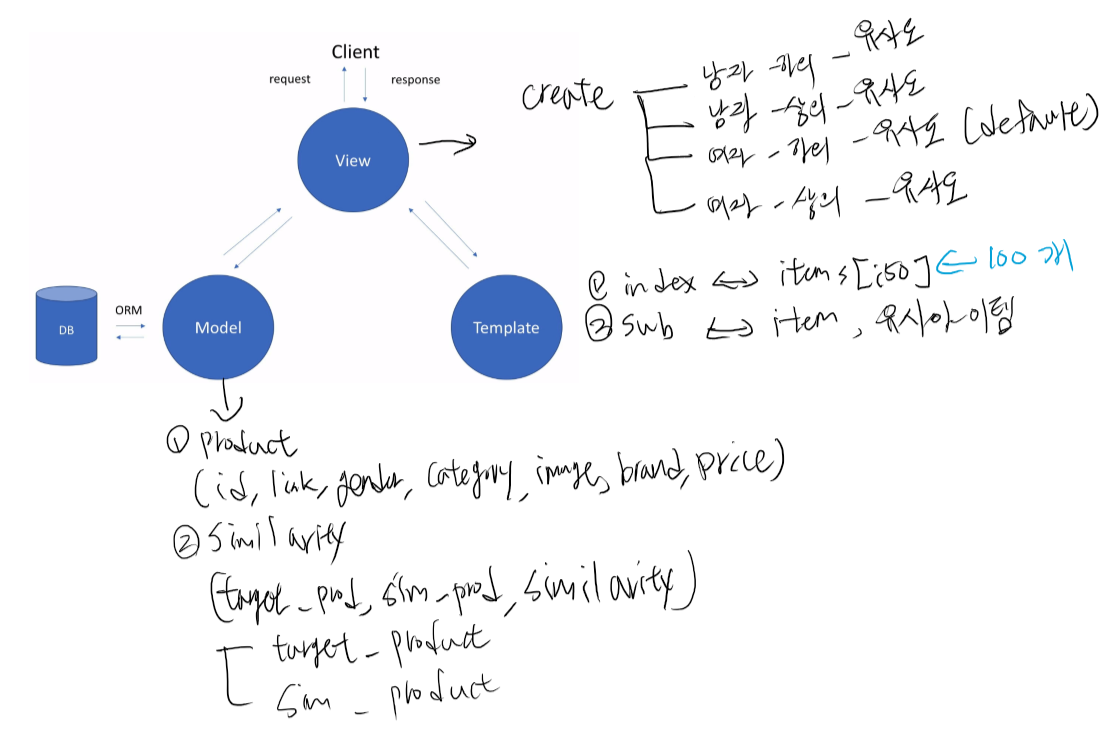 Client
request
response
View
ORM
DB
Model
Template
create
남자 - 하의 - 유사도
남자 - 상의 - 유사도
여자 - 하의 - 유사도 (default)
여자 - 상의 - 유사도
① index ↔ items[:50] ← 100개
② sub ↔ item, 유사아이템
① product
(id, link, gender, category, image, brand, price)
② similarity
(target_prod, sim_prod, similarity)
target_product
sim_product